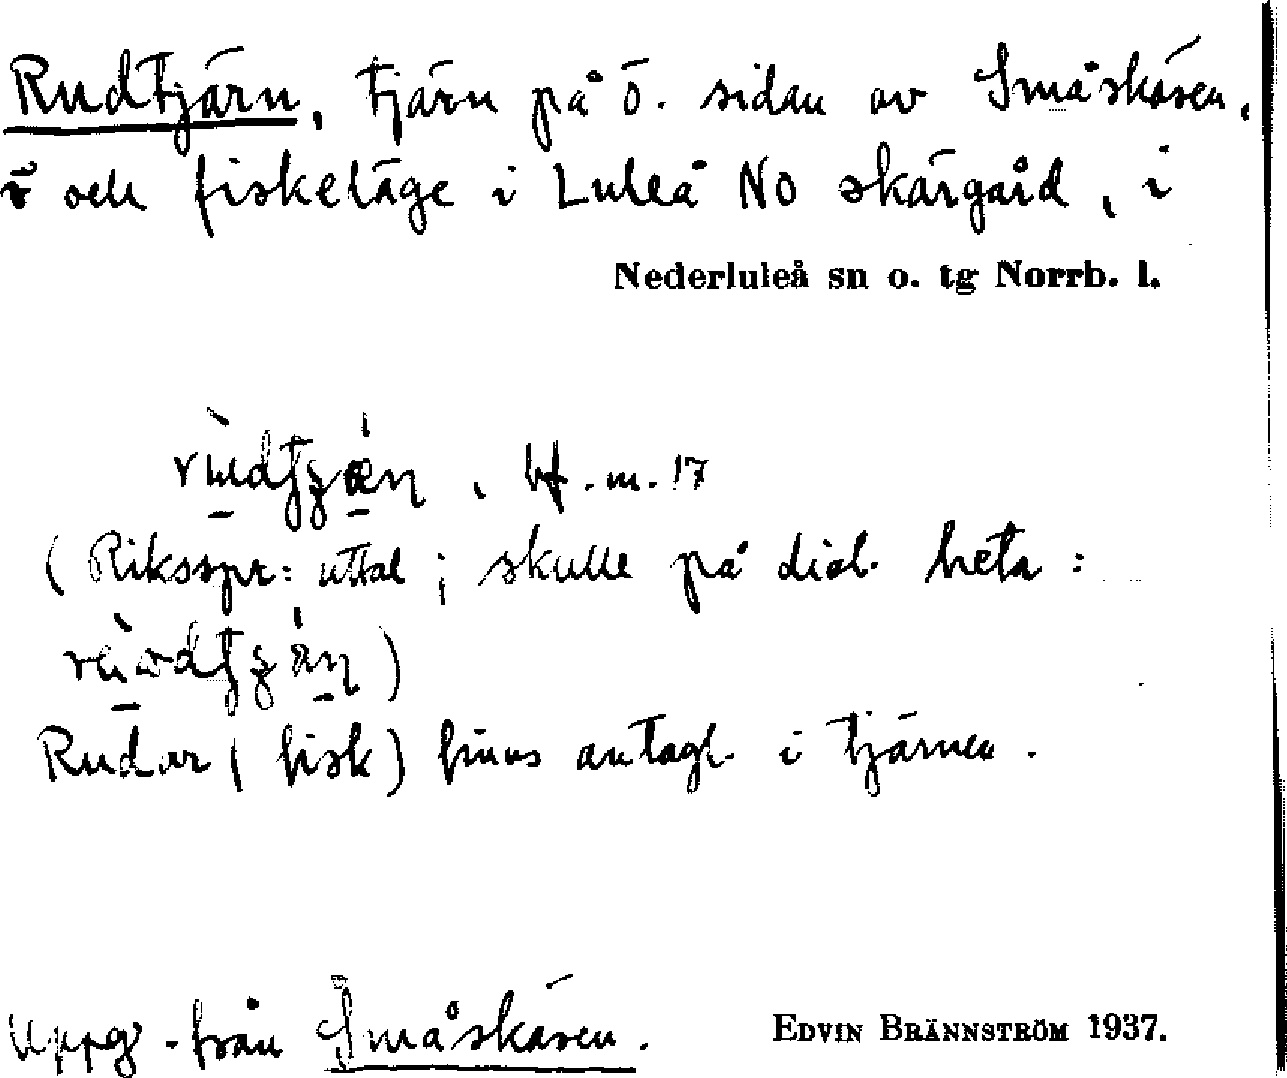 Rudtjärn, tjärn på ö. sidan av Småskären,
ö och fiskeläge i Luleå NO skärgård, i
Nederluleå sn o. tg Norrb. l.
bf. m. 17
(Riksspr: uttal; skulle på dial. heta:
Rudor (fisk) finns antagl. i tjärnen.
Uppg. från Småskären.
EDVIN BRÄNNSTRÖM 1937.